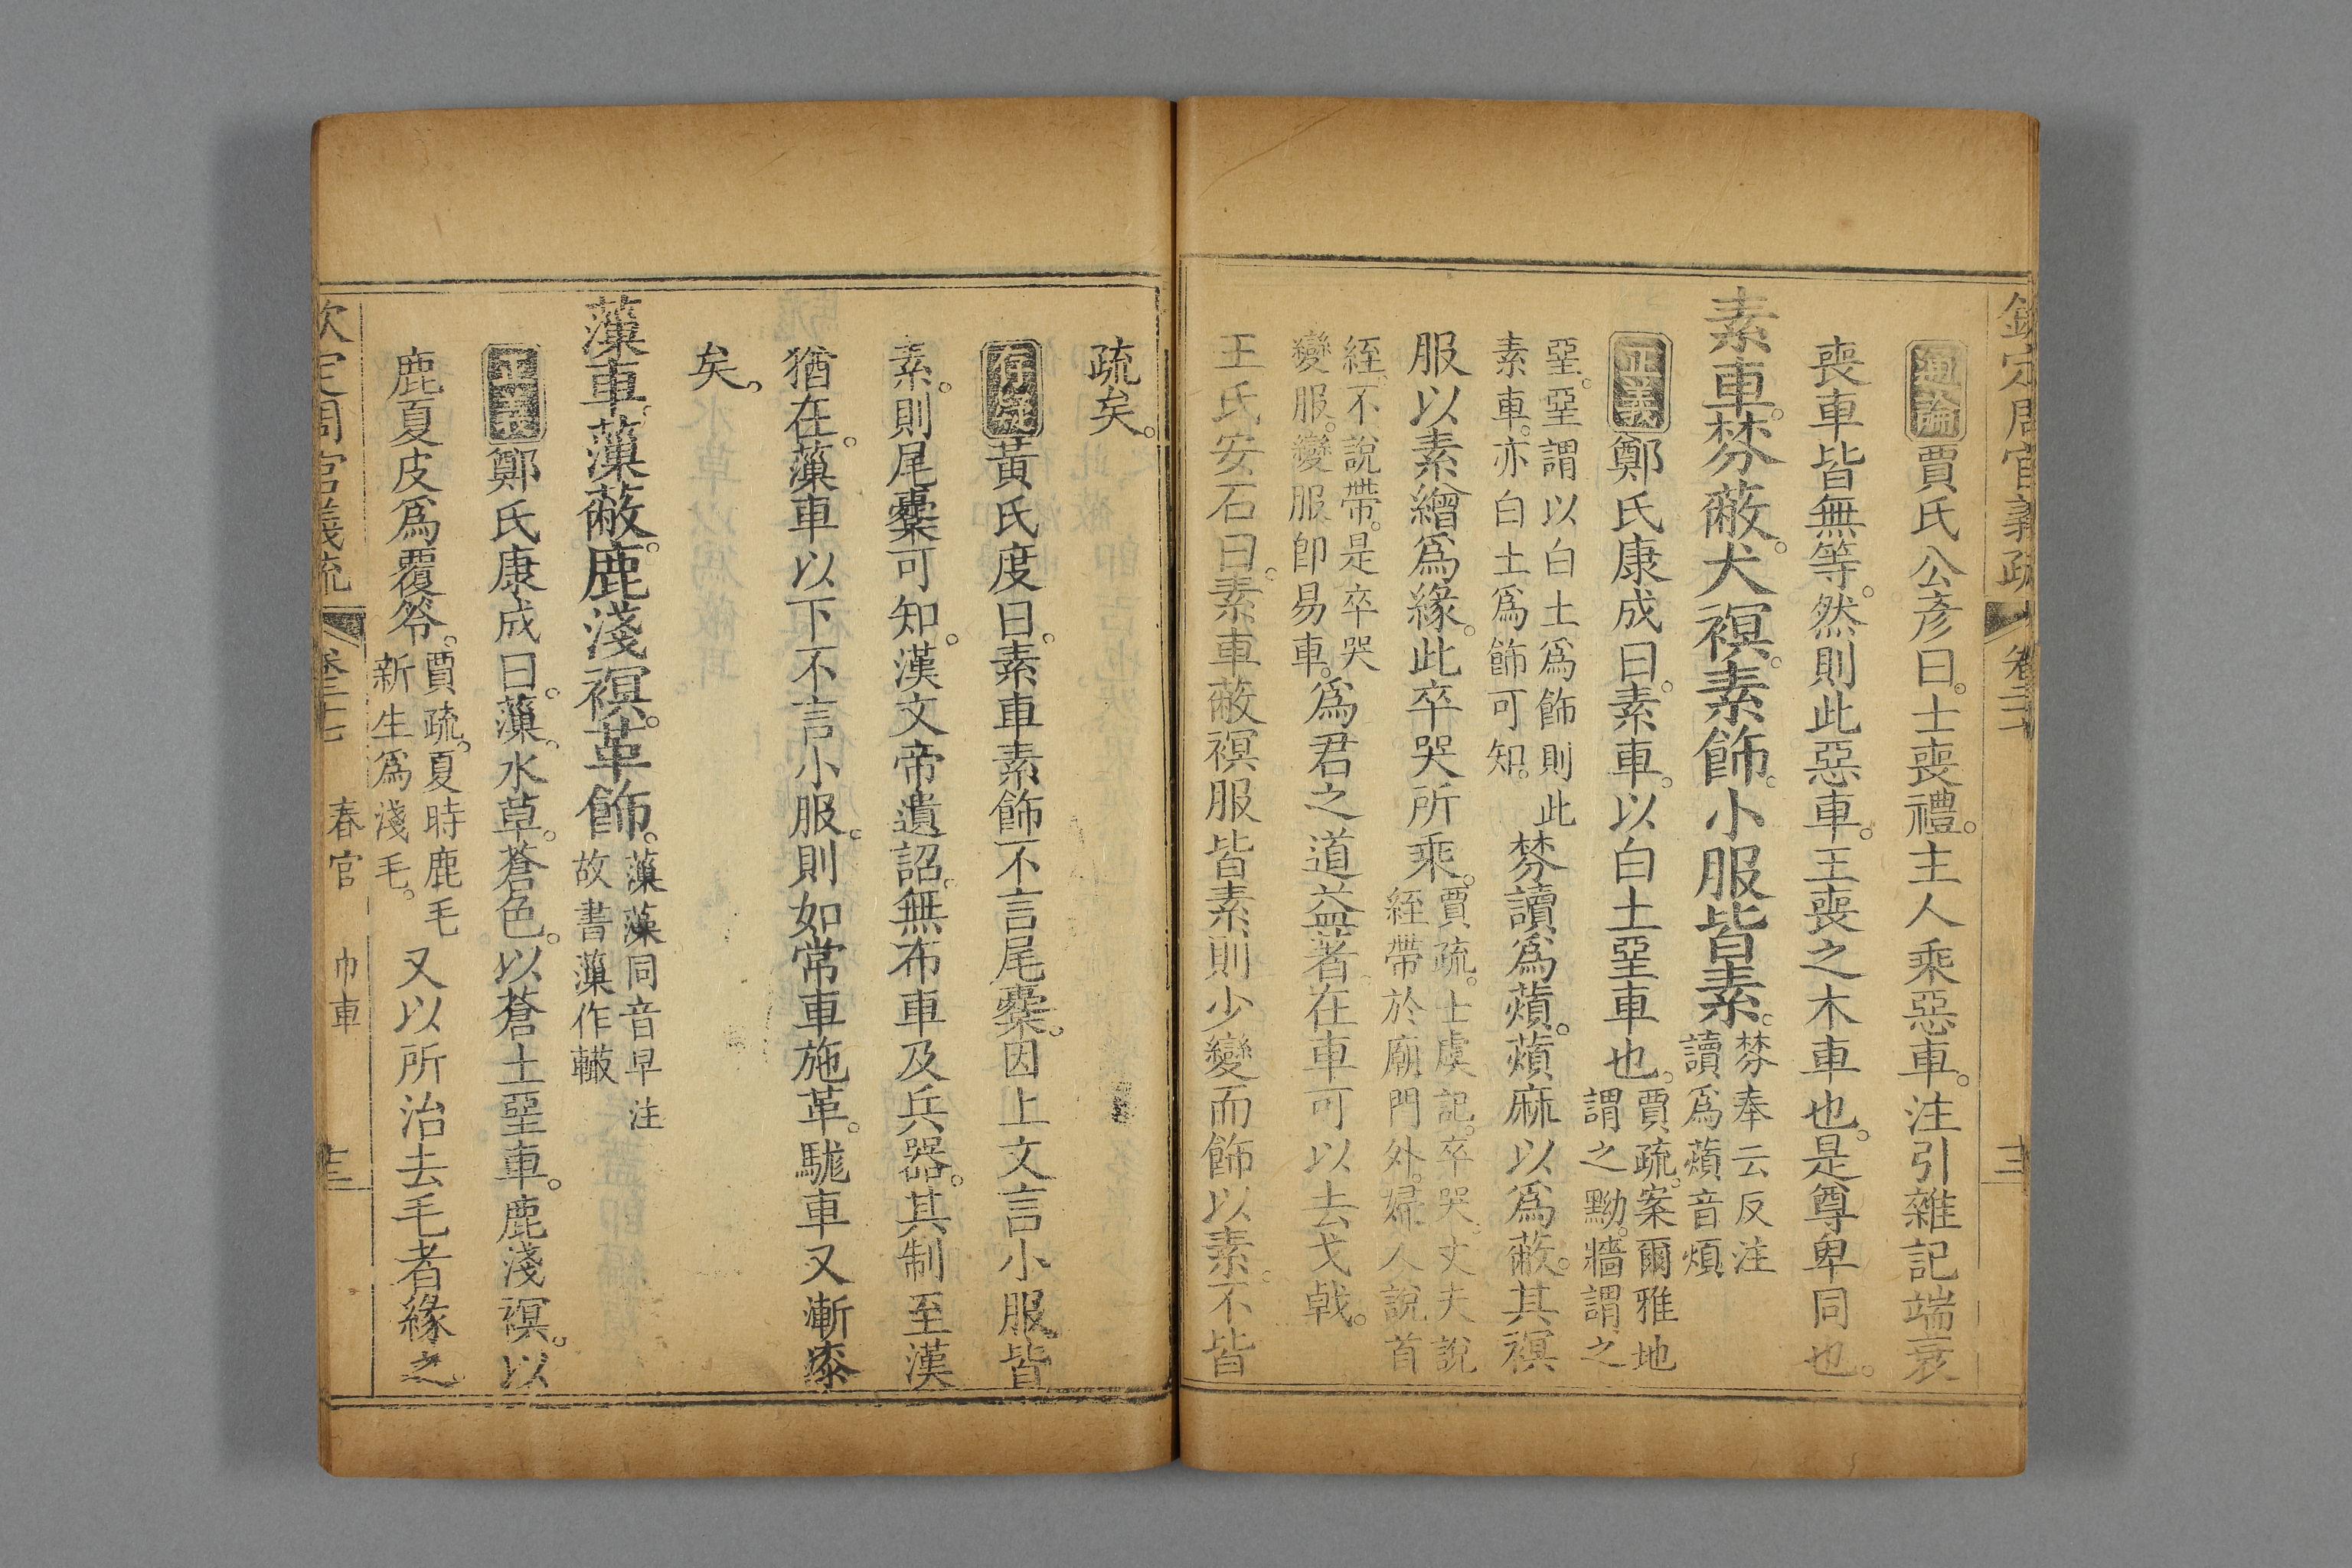 欽定周官義疏 卷二十 十三
通論賈氏公彥曰士喪禮主人乘惡車注引雜記端衰
喪車皆無等然則此惡車王喪之木車也是尊卑同也
素車棼蔽犬𧜀素飾小服皆素棼奉云反注
讀爲薠音煩
正義鄭氏康成曰素車以白土堊車也賈疏案爾雅地
謂之黝牆謂之
堊堊謂以白土爲飾則此
素車亦白土爲飾可知棼讀爲薠薠麻以爲蔽其𧜀
服以素繒爲緣此卒哭所乘賈疏士虞記卒哭丈夫說
絰帶於廟門外婦人說首
絰不說帶是卒哭
變服變服卽易車爲君之道益著在車可以去戈戟
王氏安石曰素車蔽𧜀服皆素則少變而飾以素不皆
疏矣
存疑黃氏度曰素車素飾不言尾櫜因上文言小服皆
素則尾櫜可知漢文帝遺詔無布車及兵器其制至漢
猶在薻車以下不言小服則如常車施革駹車又漸漆
矣
薻車薻蔽鹿淺𧜀革飾薻藻同音早注
故書薻作轍
正義鄭氏康成曰薻水草蒼色以蒼土堊車鹿淺𧜀以
鹿夏皮爲覆笭賈疏夏時鹿毛
新生爲淺毛又以所治去毛者緣之
欽定周官義疏 卷二十七 春官 巾車 十三